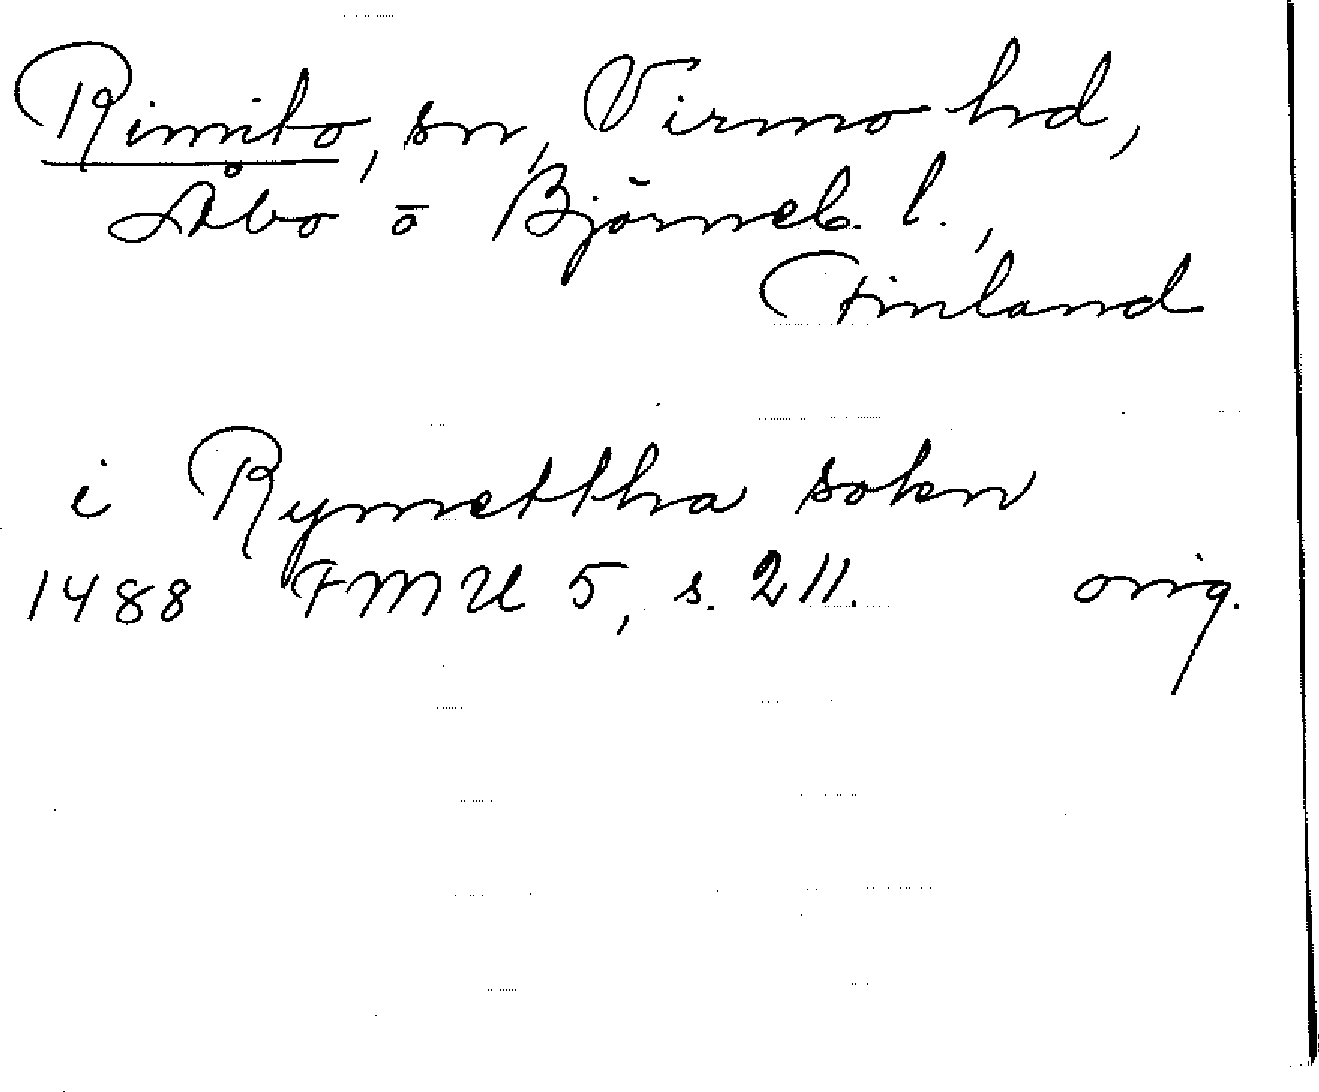 Rimito, sn, Virmo hd,
Åbo o Björneb. l.,
Finland
i Rymettha sokn
1488 FMU 5, s. 211. orig.